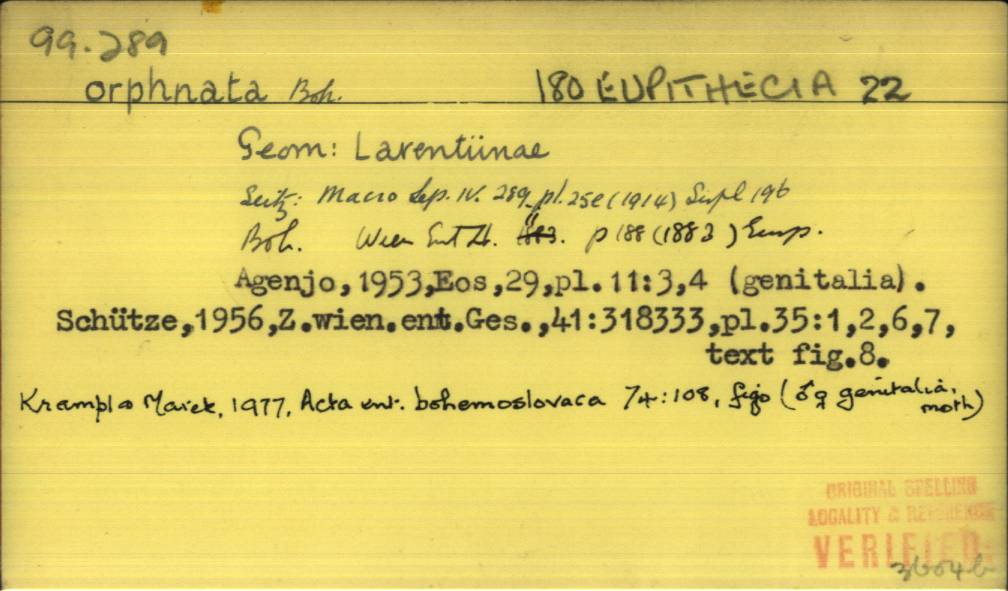 99.289
orphnata Boh. 180 EUPITHECIA 22
Geom: Larentiinae
Seitz: Macro Lep. IV. 289, pl. 25e (1914) Supl 196
Boh. Wien Ent Zt. II. p 188 (1883) Europ.
Agenjo,1953,Eos,29,pl.11:3,4 (genitalia).
Schütze,1956,Z.wien.ent.Ges.,41:318333,pl.35:1,2,6,7,
text fig.8.
Krampl & Marek, 1977, Acta ent. bohemoslovaca 74:108, figs (♂♀ genitalia, moth)
ORIGINAL SPELLING
LOCALITY & REFERENCE
VERIFIED.
3604b